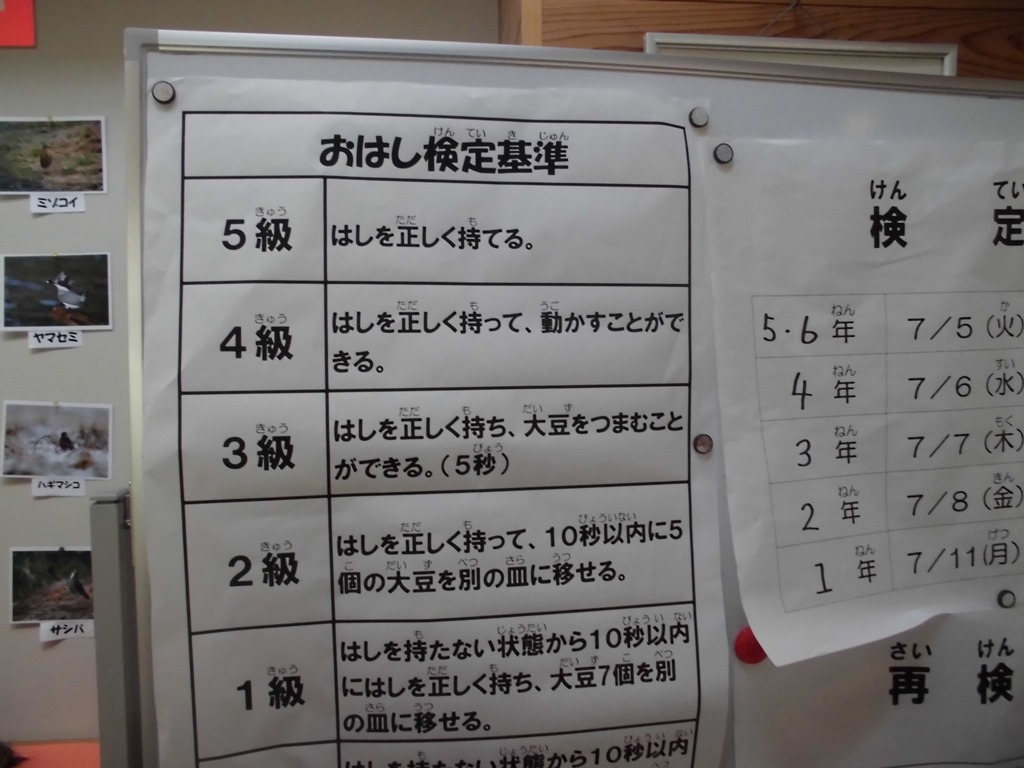 おはし検定基準
5級
はしを正しく持てる。
4級
はしを正しく持って、動かすことがで
きる。
3級
はしを正しく持ち、大豆をつまむこと
ができる。(5秒)
2級
はしを正しく持って、10秒以内に5
個の大豆を別の皿に移せる。
1級
はしを持たない状態から10秒以内
にはしを正しく持ち、大豆7個を別
の皿に移せる。
はしを持たない状態から10秒以内
検定
5・6年 7/5(火)
4年 7/6(水)
3年 7/7(木)
2年 7/8(金)
1年 7/11(月)
再検
ミゾゴイ
ヤマセミ
ハギマシコ
サシバ